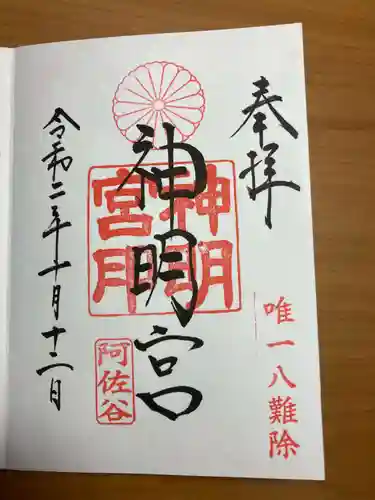 奉拝
唯一八難除
神明宮
神明宮
阿佐谷
令和二年十月十二日